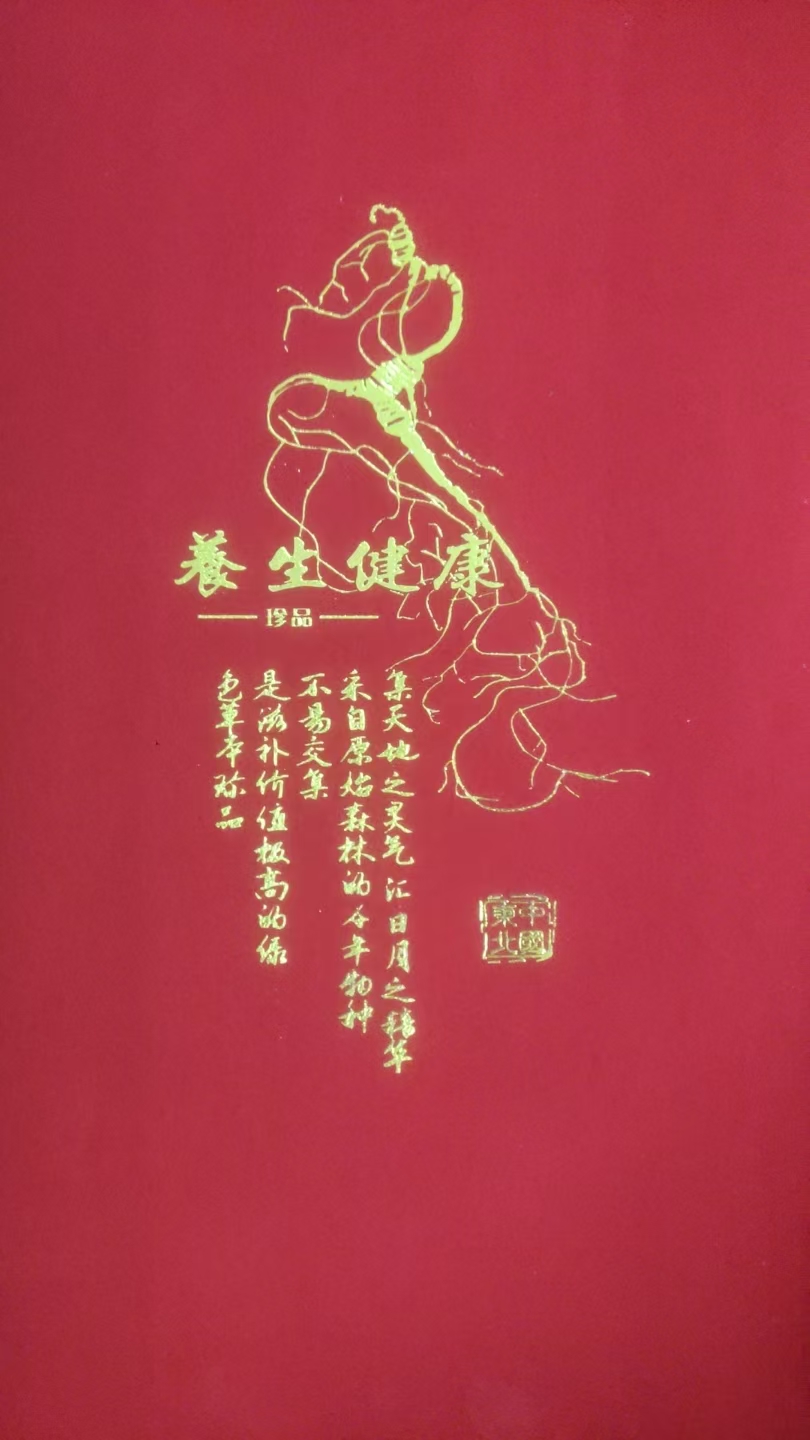 養生健康
珍品
集天地之灵气汇日月之精华
采自原始森林的百年物种
不易交集
是滋补价值极高的绿
色草本珍品
中國
東北